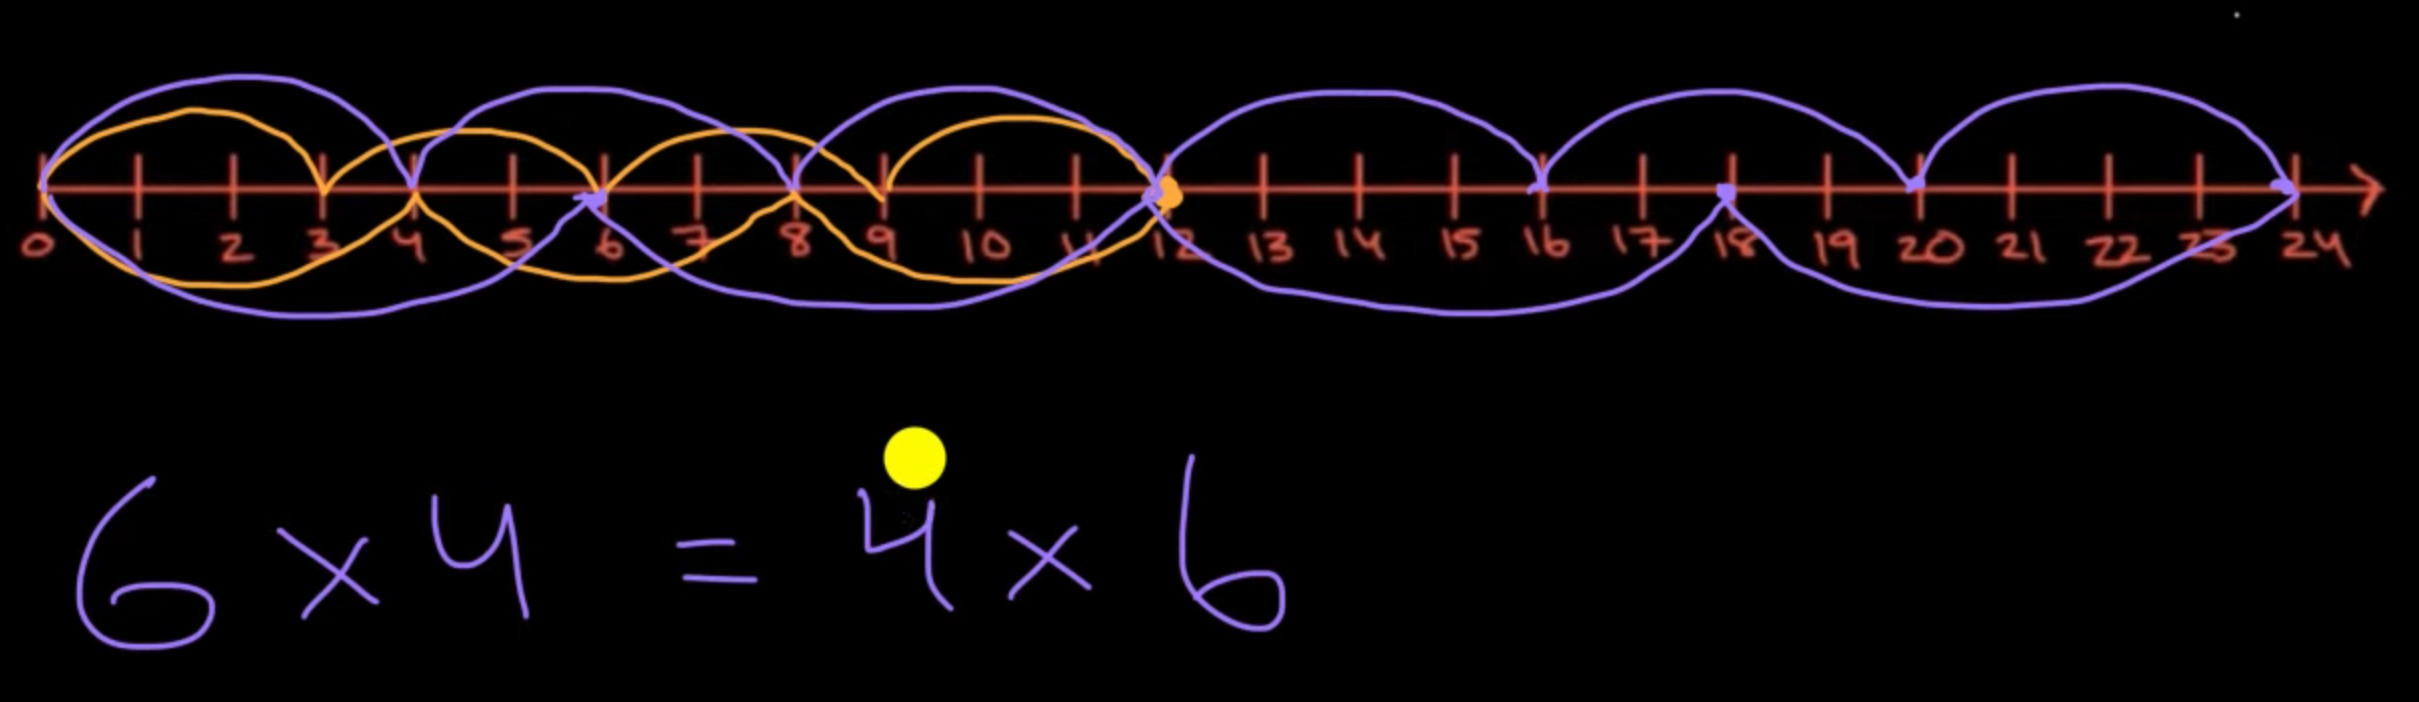 0 1 2 3 4 5 6 7 8 9 10 11 12 13 14 15 16 17 18 19 20 21 22 23 24
6 × 4 = 4 × 6